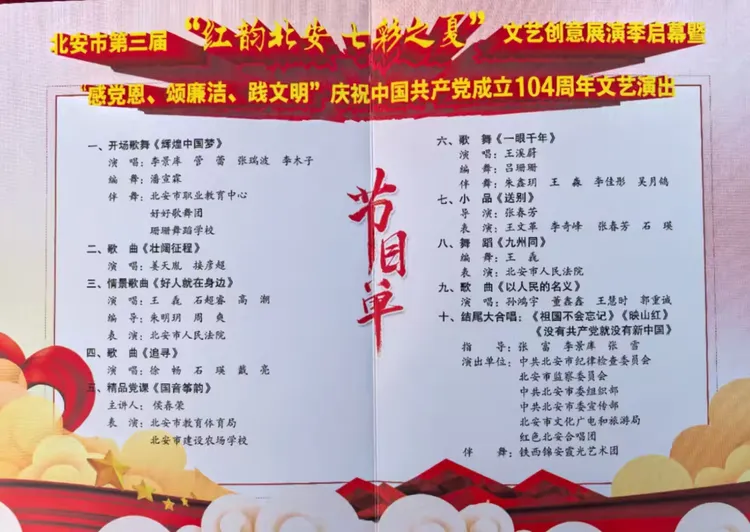 北安市第三届 “红韵北安 七彩之夏” 文艺创意展演季启幕暨
“感党恩、颂廉洁、践文明” 庆祝中国共产党成立104周年文艺演出
节目单
一、开场歌舞《辉煌中国梦》
演 唱：李景库 菅蕾 张瑞波 李木子
编 舞：潘宣霖
伴 舞：北安市职业教育中心
好好歌舞团
珊珊舞蹈学校
二、歌 曲《壮阔征程》
演唱：姜天胤 接彦超
三、情景歌曲《好人就在身边》
演 唱：王 磊 石超睿 高 潮
编 导：朱明玥 周 爽
表 演：北安市人民法院
四、歌 曲《追寻》
演 唱：徐 畅 石 瑛 戴 亮
三、精品党课《国音筝韵》
主讲人：侯春荣
表 演：北安市教育体育局
北安市建设农场学校
六、歌 舞《一眼千年》
演 唱：王溪蔚
编 舞：吕珊珊
伴 舞：朱鑫玥 王 淼 李佳彤 吴月鸽
七、小 品《送别》
导 演：张春芳
表 演：王文 李奇峰 张春芳 石 瑛
八、舞 蹈《九州同》
编 舞：王 磊
表 演：北安市人民法院
九、歌 曲《以人民的名义》
演 唱：孙鸿宇 董鑫鑫 王慧时 郭重诚
十、结尾大合唱：《祖国不会忘记》《映山红》
《没有共产党就没有新中国》
指 导：张 富 李景库 张 雪
演出单位：中共北安市纪律检查委员会
北安市监察委员会
中共北安市委组织部
中共北安市委宣传部
北安市文化广电和旅游局
红色北安合唱团
伴 舞：铁西锦安霞光艺术团